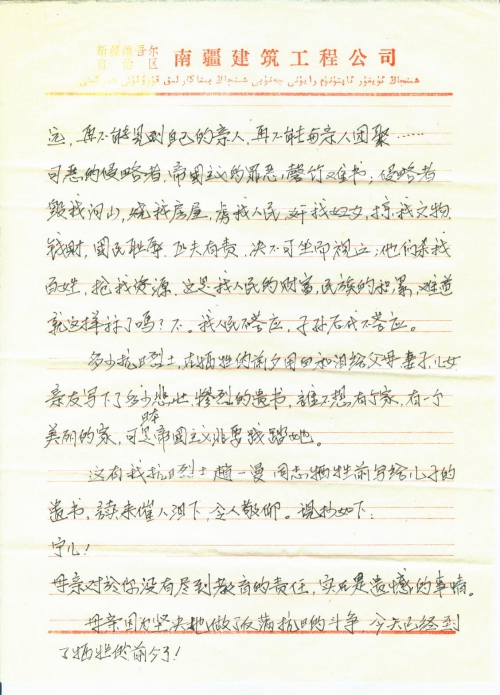 新疆维吾尔
自治区
南疆建筑工程公司
远,再不能见到自己的亲人,再不能与亲人团聚……
可恶的侵略者,帝国主义的罪恶,罄竹难书,侵略者
毁我河山,烧我房屋,虐我人民,奸我妇女,掠我文物,
钱财,国民耻辱,匹夫有责,决不可坐而视之;他们杀我
百姓,抢我资源,这是我人民的财富,民族的积累,难道
就这样补了吗?不。我人民不答应,子孙后代不答应。
多少抗日烈士,在牺牲的前夕用血和泪给父母妻子儿女
亲友写下了多少悲壮、惨烈的遗书,谁不想有个家,有一个
美丽的家,可是日本帝国主义非要践踏她。
这有我抗日烈士赵一曼同志牺牲前写给儿子的
遗书,读来催人泪下,令人敬仰。现抄如下:
宁儿!
母亲对於你没有尽到教育的责任,实在是遗憾的事情。
母亲因为坚决地做了反满抗日的斗争,今天已经到
了牺牲的前夕了!